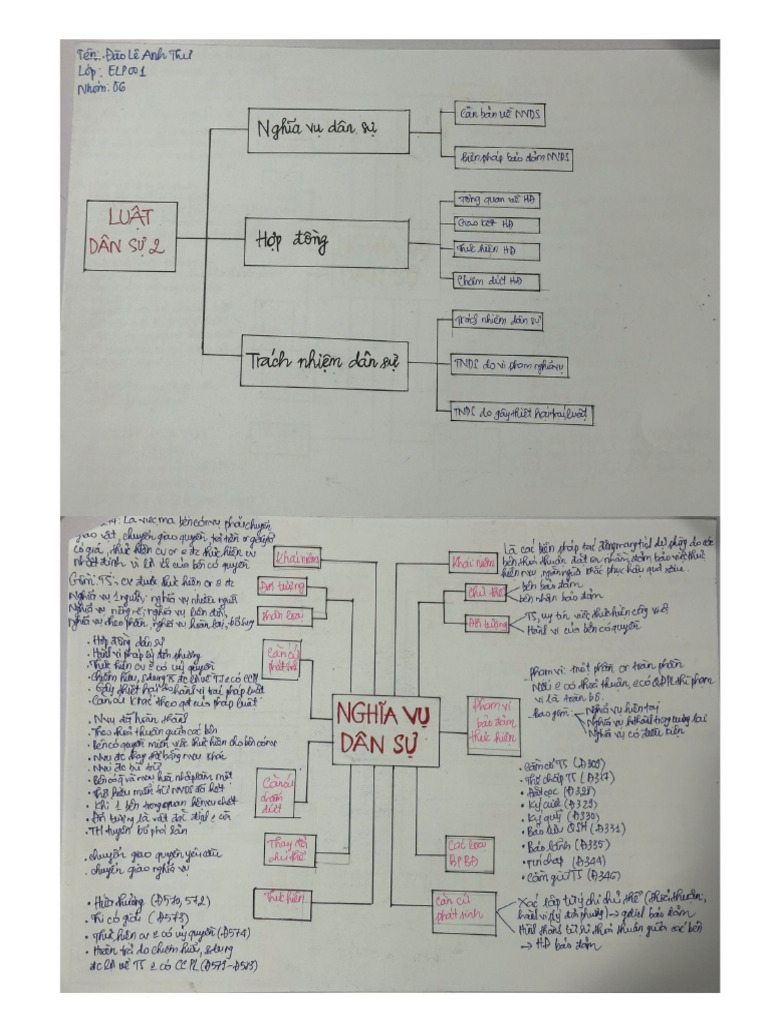 Tên: Đào Lê Anh Thư
Lớp: ELP001
Nhóm: 06
LUẬT
DÂN SỰ 2
Nghĩa vụ dân sự
Căn bản về NVDS
Biện pháp bảo đảm NVDS
Hợp đồng
Tổng quan về HĐ
Giao kết HĐ
Thực hiện HĐ
Chấm dứt HĐ
Trách nhiệm dân sự
Trách nhiệm dân sự
TNDS do vi phạm nghĩa vụ
TNDS do gây thiệt hại trái luật
NGHĨA VỤ
DÂN SỰ
Khái niệm
Là việc mà bên có vụ phải chuyển
giao vật, chuyển giao quyền, trả tiền or giấy tờ
có giá, thực hiện cv or k đc thực hiện cv
nhất định vì lợi ích của bên có quyền.
Đối tượng
Gồm: TS, cv được thực hiện or k đc
Phân loại
Nghĩa vụ 1 người, nghĩa vụ nhiều người
Nghĩa vụ riêng rẽ, nghĩa vụ liên đới,
nghĩa vụ theo phần, nghĩa vụ hoàn lại, bổ sung
Căn cứ
phát sinh
• Hợp đồng dân sự
• Hành vi pháp lý đơn phương
• Thực hiện cv k có uỷ quyền
• Chiếm hữu, sử dụng or đc lợi về TS k có CCPL
• Gây thiệt hại do hành vi trái pháp luật
• Căn cứ khác theo qđ của pháp luật
Căn cứ
chấm
dứt
• Nvụ đã hoàn thành
• Theo thoả thuận giữa các bên
• Bên có quyền miễn việc thực hiện cho bên có nv
• Nvụ đc thay thế bằng nvụ khác
• Nvụ đc bù trừ
• Bên có q và nvụ hoà nhập làm một
• Thời hiệu miễn trừ NVDS đã hết
• Khi 1 bên trong quan hệ nvụ chết
• Đối tượng là vật đặc định k còn
• TH tuyên bố phá sản
Thay đổi
chủ thể
. chuyển giao quyền yêu cầu
. chuyển giao nghĩa vụ
Thực hiện
• Hứa thưởng (Đ570, 572)
• Thi có giải (Đ573)
• Thực hiện cv k có uỷ quyền (Đ574)
• Hoàn trả do chiếm hữu, sử dụng
đc lợi về TS k có CCPL (Đ579-Đ583)
Khái niệm
Là các biện pháp tác động mang tính dự phòng do các
bên thoả thuận đặt ra nhằm đảm bảo việc thực
hiện nvụ, ngăn ngừa khắc phục hậu quả xấu.
Chủ thể
bên bảo đảm
bên nhận bảo đảm
Đối tượng
TS, uy tín, việc thực hiện công việc
Hành vi của bên có quyền
Phạm vi
bảo đảm
thực hiện
phạm vi: một phần or toàn phần
Nếu k có thoả thuận, k có QĐPL thì phạm
vi là toàn bộ.
Bao gồm: Nghĩa vụ hiện tại
Nghĩa vụ hình thành trong tương lai
Nghĩa vụ có điều kiện
Các loại
BPBĐ
• Cầm cố TS (Đ309)
• Thế chấp TS (Đ317)
• Đặt cọc (Đ328)
• Ký cược (Đ329)
• Ký quỹ (Đ330)
• Bảo lưu QSH (Đ331)
• Bảo lãnh (Đ335)
• Tín chấp (Đ344)
• Cầm giữ TS (Đ346)
Căn cứ
phát sinh
Xác lập từ ý chí chủ thể (thoả thuận,
hành vi pl đơn phương) → gdịch bảo đảm
Hình thành từ sự thoả thuận giữa các bên
→ HĐ bảo đảm